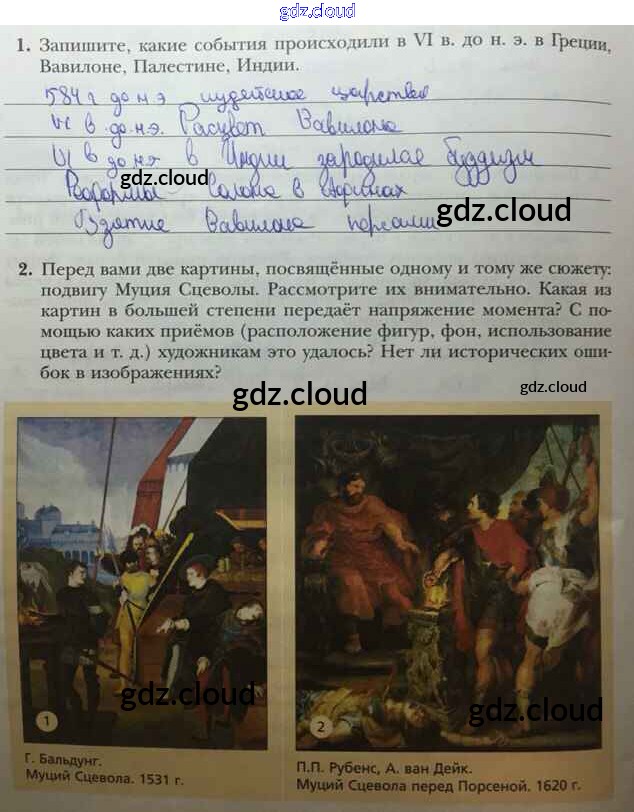 gdz.cloud
1. Запишите, какие события происходили в VI в. до н. э. в Греции,
Вавилоне, Палестине, Индии.
584 г до н э иудейское царство
VI в до.н.э. Расцвет Вавилона
VI в до н э в Индии зародилая буддизм
gdz.cloud
Реформы Солона в Афинах
gdz.cloud
Взятие Вавилона персами
2. Перед вами две картины, посвящённые одному и тому же сюжету:
подвигу Муция Сцеволы. Рассмотрите их внимательно. Какая из
картин в большей степени передаёт напряжение момента? С по-
мощью каких приёмов (расположение фигур, фон, использование
цвета и т. д.) художникам это удалось? Нет ли исторических оши-
бок в изображениях?
gdz.cloud
gdz.cloud
gdz.cloud
gdz.cloud
gdz.cloud
gdz.cloud
1
2
Г. Бальдунг.
Муций Сцевола. 1531 г.
П.П. Рубенс, А. ван Дейк.
Муций Сцевола перед Порсеной. 1620 г.